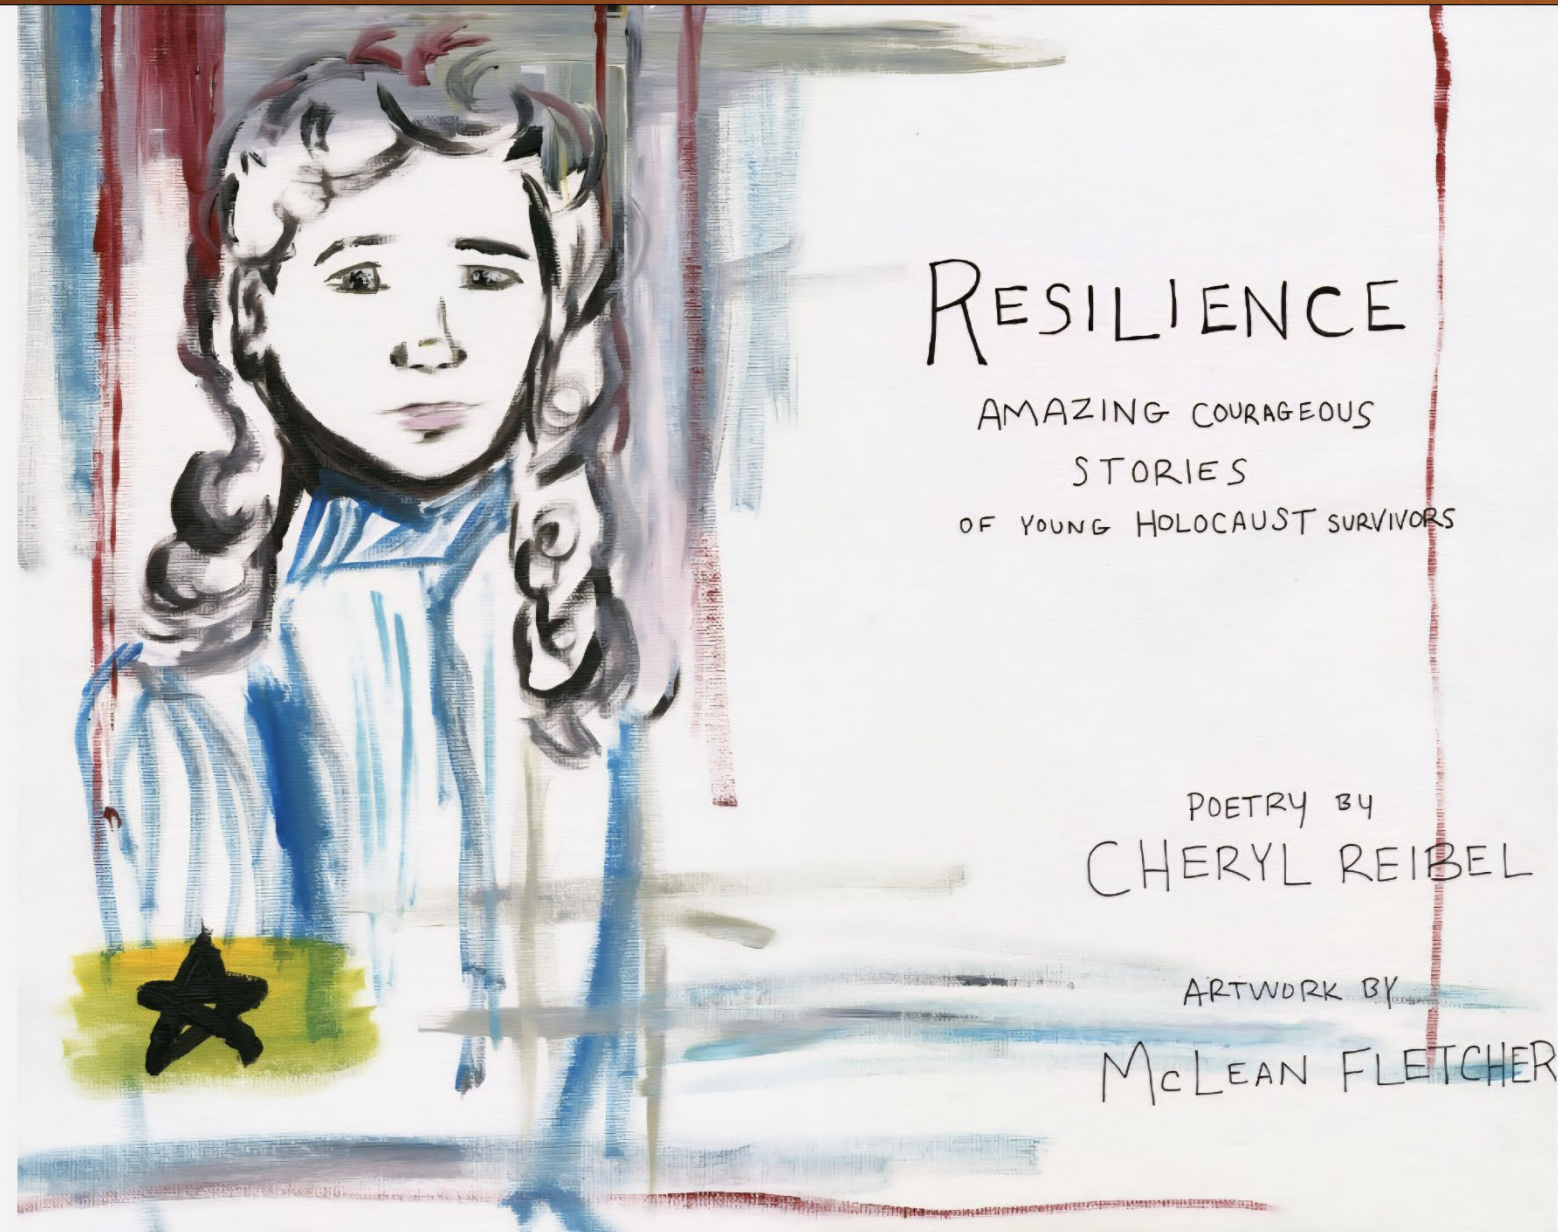 RESILIENCE
AMAZING COURAGEOUS
STORIES
OF YOUNG HOLOCAUST SURVIVORS
POETRY BY
CHERYL REIBEL
ARTWORK BY
McLEAN FLETCHER